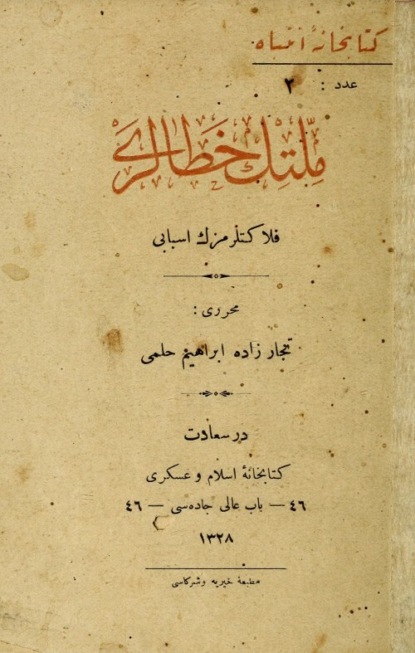 كتابخانهٔ انتباه
عدد : ٢
ملتك خطالری
فلاكتلرمزك اسبابی
محرری :
تجار زاده ابراهيم حلمی
درسعادت
كتابخانهٔ اسلام و عسكری
٤٦ — باب عالی جاده‌سی — ٤٦
١٣٢٨
مطبعهٔ خيريه و شركاسی